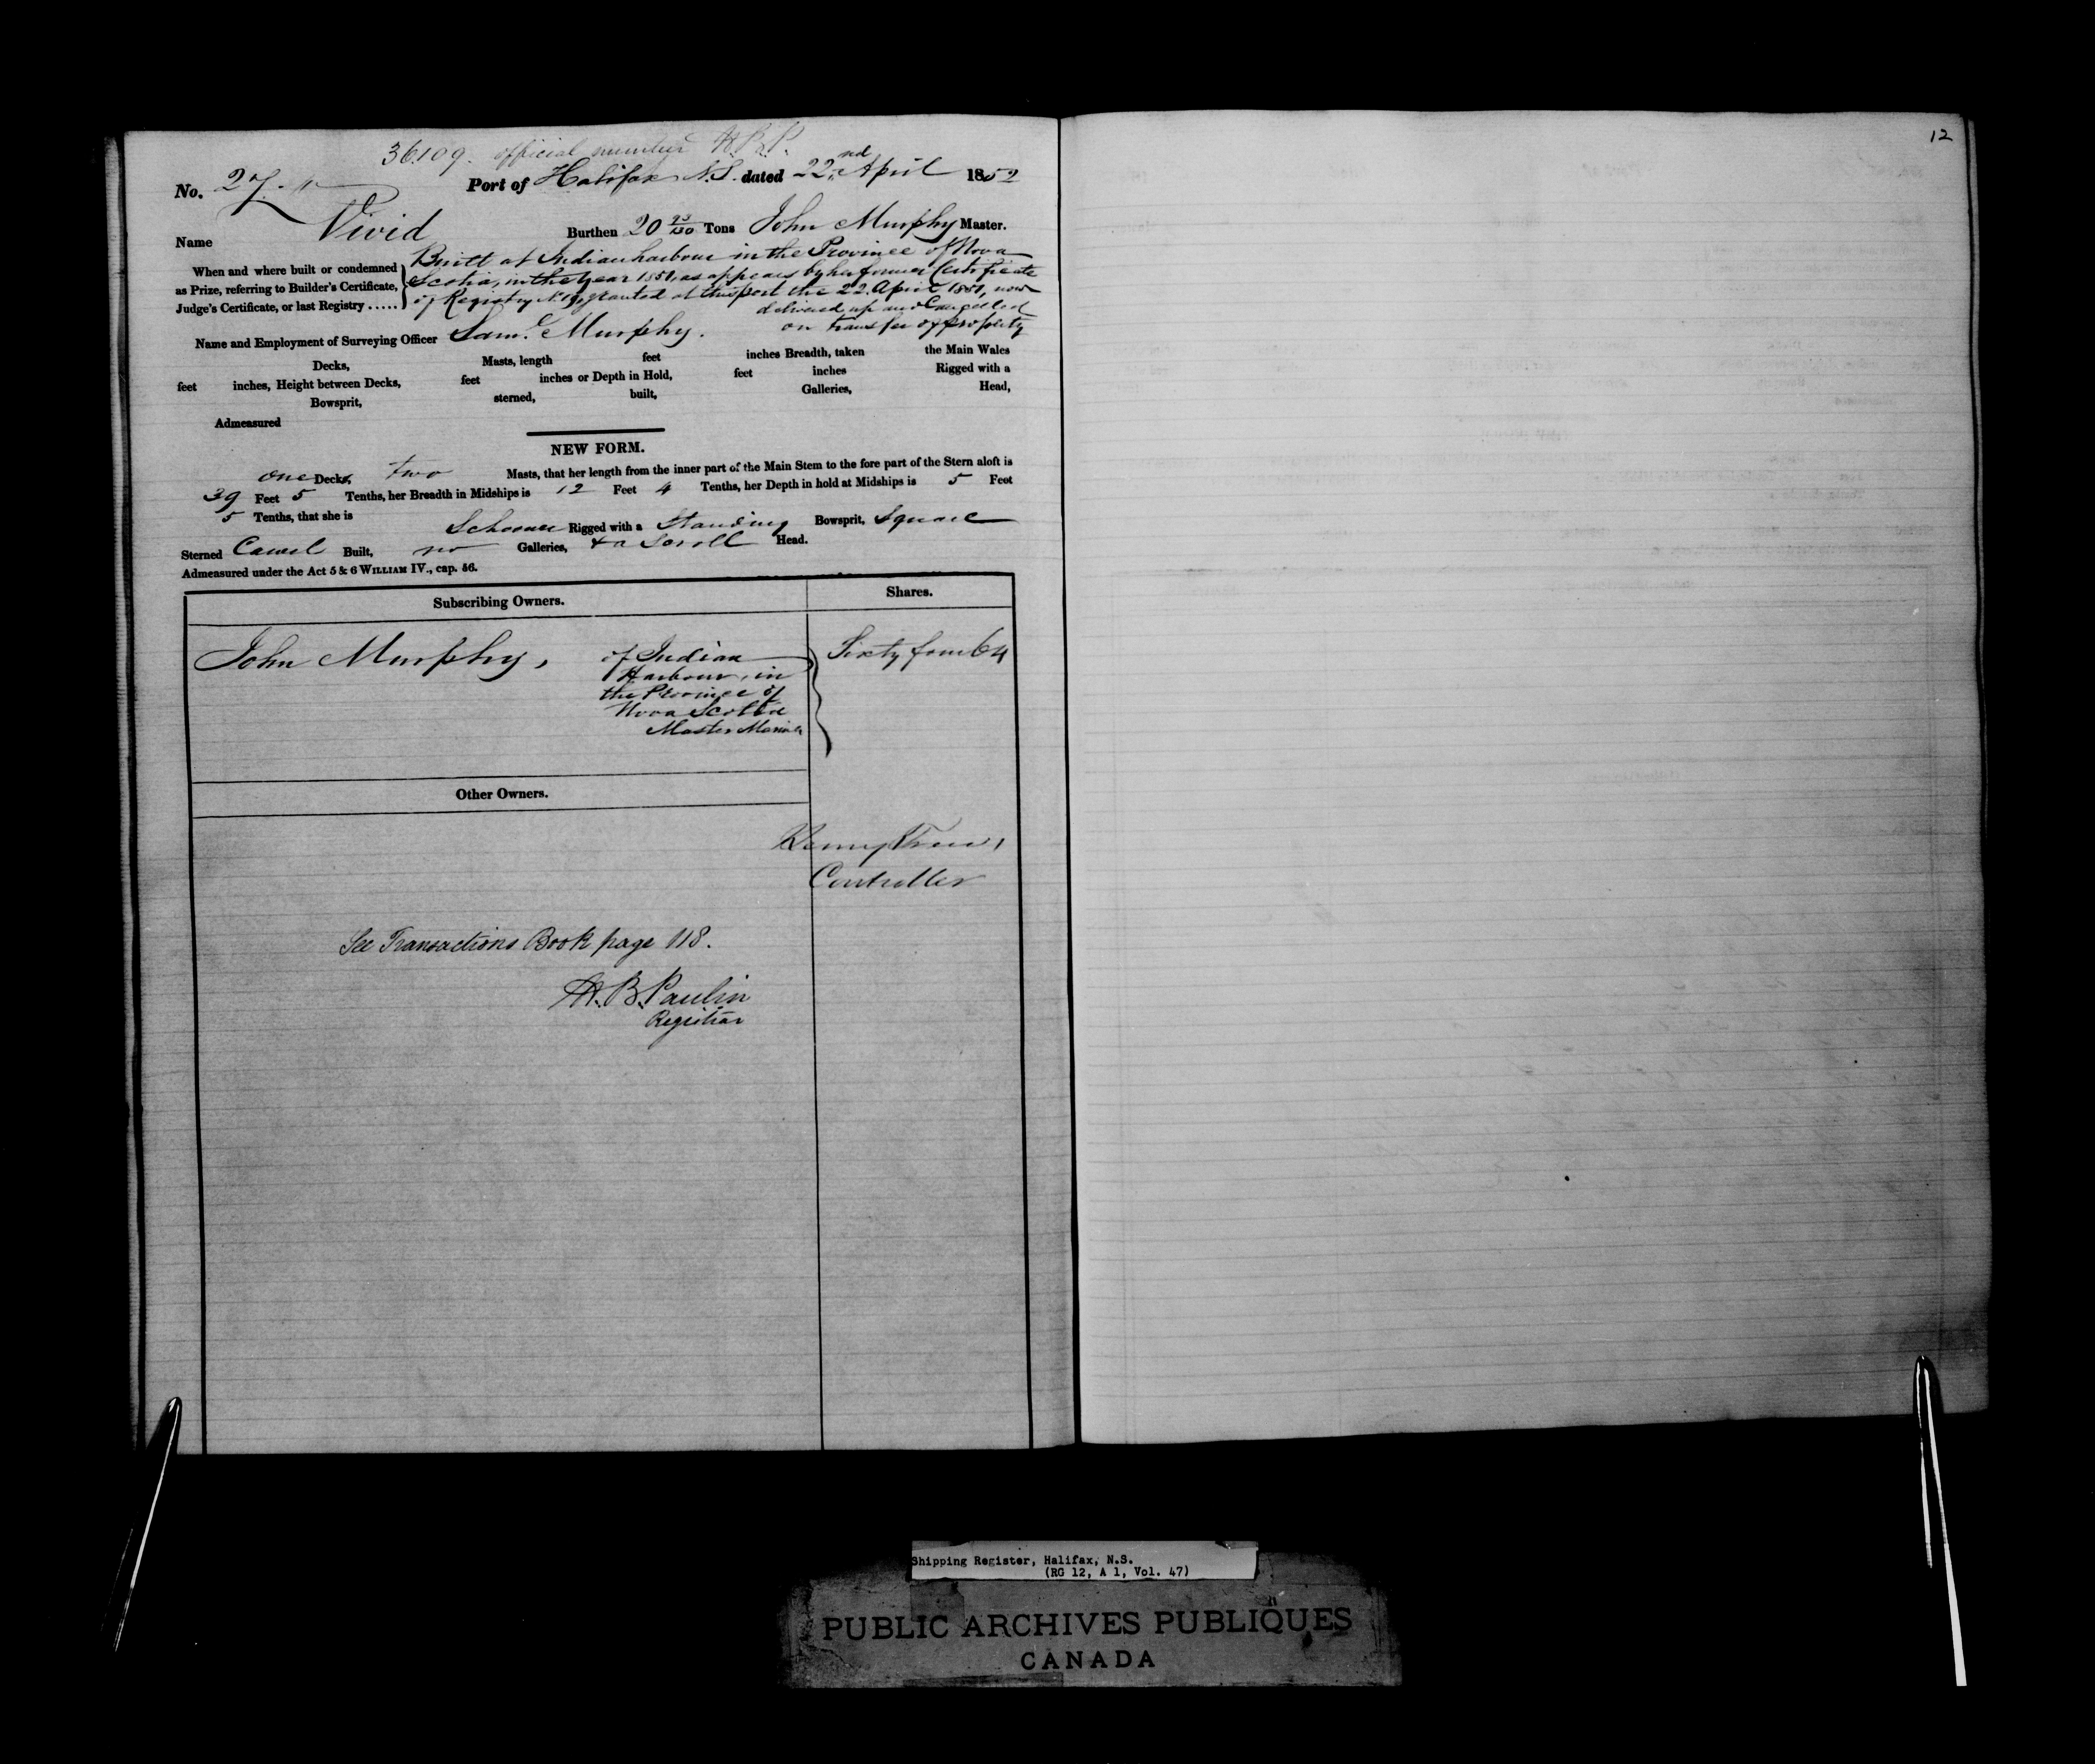 36109. official number H.B.P.
12
No. 27. Port of Halifax N.S. dated 22nd April 1852
Name Vivid Burthen 20 Tons John Murphy Master.
When and where built or condemned as Prize, referring to Builder's Certificate, Judge's Certificate, or last Registry .....
Built at Indian harbour in the Province of Nova
Scotia, in the Year 1851, as appears by her former Certificate
of Registry granted at this port the 22. April 1851, now
delivered up and Cancelled
on transfer of property
Name and Employment of Surveying Officer Saml. Murphy.
Decks, Masts, length feet inches Breadth, taken the Main Wales
feet inches, Height between Decks, feet inches or Depth in Hold, feet inches Rigged with a
Bowsprit, sterned, built, Galleries, Head,
Admeasured
NEW FORM.
one Decks, two Masts, that her length from the inner part of the Main Stem to the fore part of the Stern aloft is
39 Feet 5 Tenths, her Breadth in Midships is 12 Feet 4 Tenths, her Depth in hold at Midships is 5 Feet
5 Tenths, that she is Schooner Rigged with a Standing Bowsprit, Square
Sterned Carvel Built, no Galleries, & a Scroll Head.
Admeasured under the Act 5 & 6 WILLIAM IV., cap. 56.
Subscribing Owners. Shares.
John Murphy, of Indian Sixty four 64
Harbour, in
the Province of
Nova Scotia
Master Mariner
Other Owners.
Controller
See Transactions Book page 118.
H.B. Paulin
Registrar
Shipping Register, Halifax, N.S.
(RG 12, A 1, Vol. 47)
PUBLIC ARCHIVES PUBLIQUES
CANADA